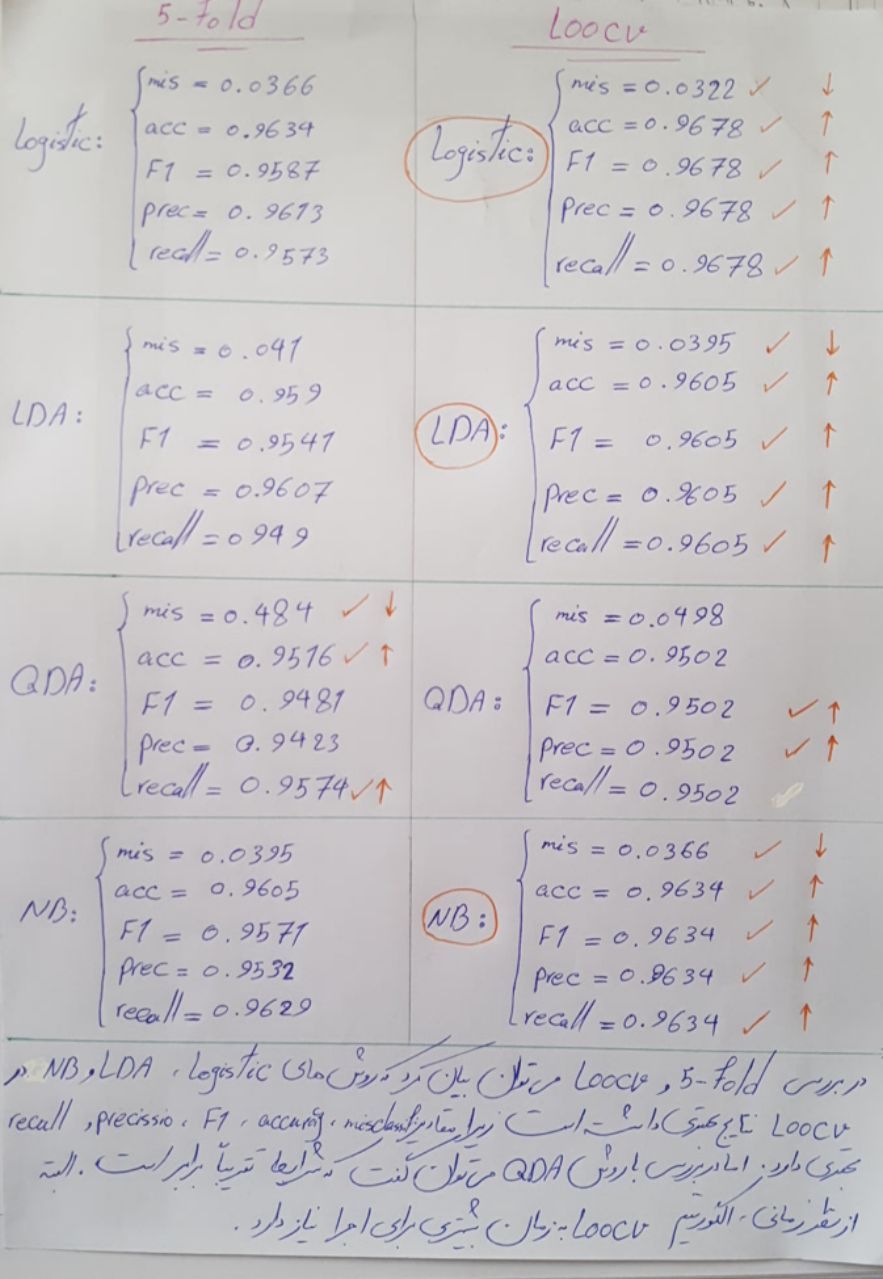 5-Fold
Loocv
Logistic:
mis = 0.0366
acc = 0.9634
F1 = 0.9587
prec = 0.9613
recall = 0.9573
Logistic:
mis = 0.0322 ✓ ↓
acc = 0.9678 ✓ ↑
F1 = 0.9678 ✓ ↑
prec = 0.9678 ✓ ↑
recall = 0.9678 ✓ ↑
LDA:
mis = 0.041
acc = 0.959
F1 = 0.9541
prec = 0.9607
recall = 0949
LDA:
mis = 0.0395 ✓ ↓
acc = 0.9605 ✓ ↑
F1 = 0.9605 ✓ ↑
prec = 0.9605 ✓ ↑
recall = 0.9605 ✓ ↑
QDA:
mis = 0.484 ✓ ↓
acc = 0.9516 ✓ ↑
F1 = 0.9481
prec = 0.9423
recall = 0.9574 ✓ ↑
QDA:
mis = 0.0498
acc = 0.9502
F1 = 0.9502 ✓ ↑
prec = 0.9502 ✓ ↑
recall = 0.9502
NB:
mis = 0.0395
acc = 0.9605
F1 = 0.9571
prec = 0.9532
recall = 0.9629
NB:
mis = 0.0366 ✓ ↓
acc = 0.9634 ✓ ↑
F1 = 0.9634 ✓ ↑
prec = 0.9634 ✓ ↑
recall = 0.9634 ✓ ↑
در بررسی 5-Fold و Loocv می‌توان بیان کرد که روش های Logistic، LDA و NB در
Loocv نتایج بهتری داشته است زیرا مقادیر misclassif، accuracy، F1، precissio و recall
بهتری دارد. اما در بررسی با روش QDA می‌توان گفت که شرایط تقریباً برابر است. البته
از نظر زمانی، الگوریتم Loocv به زمان بیشتری برای اجرا نیاز دارد.